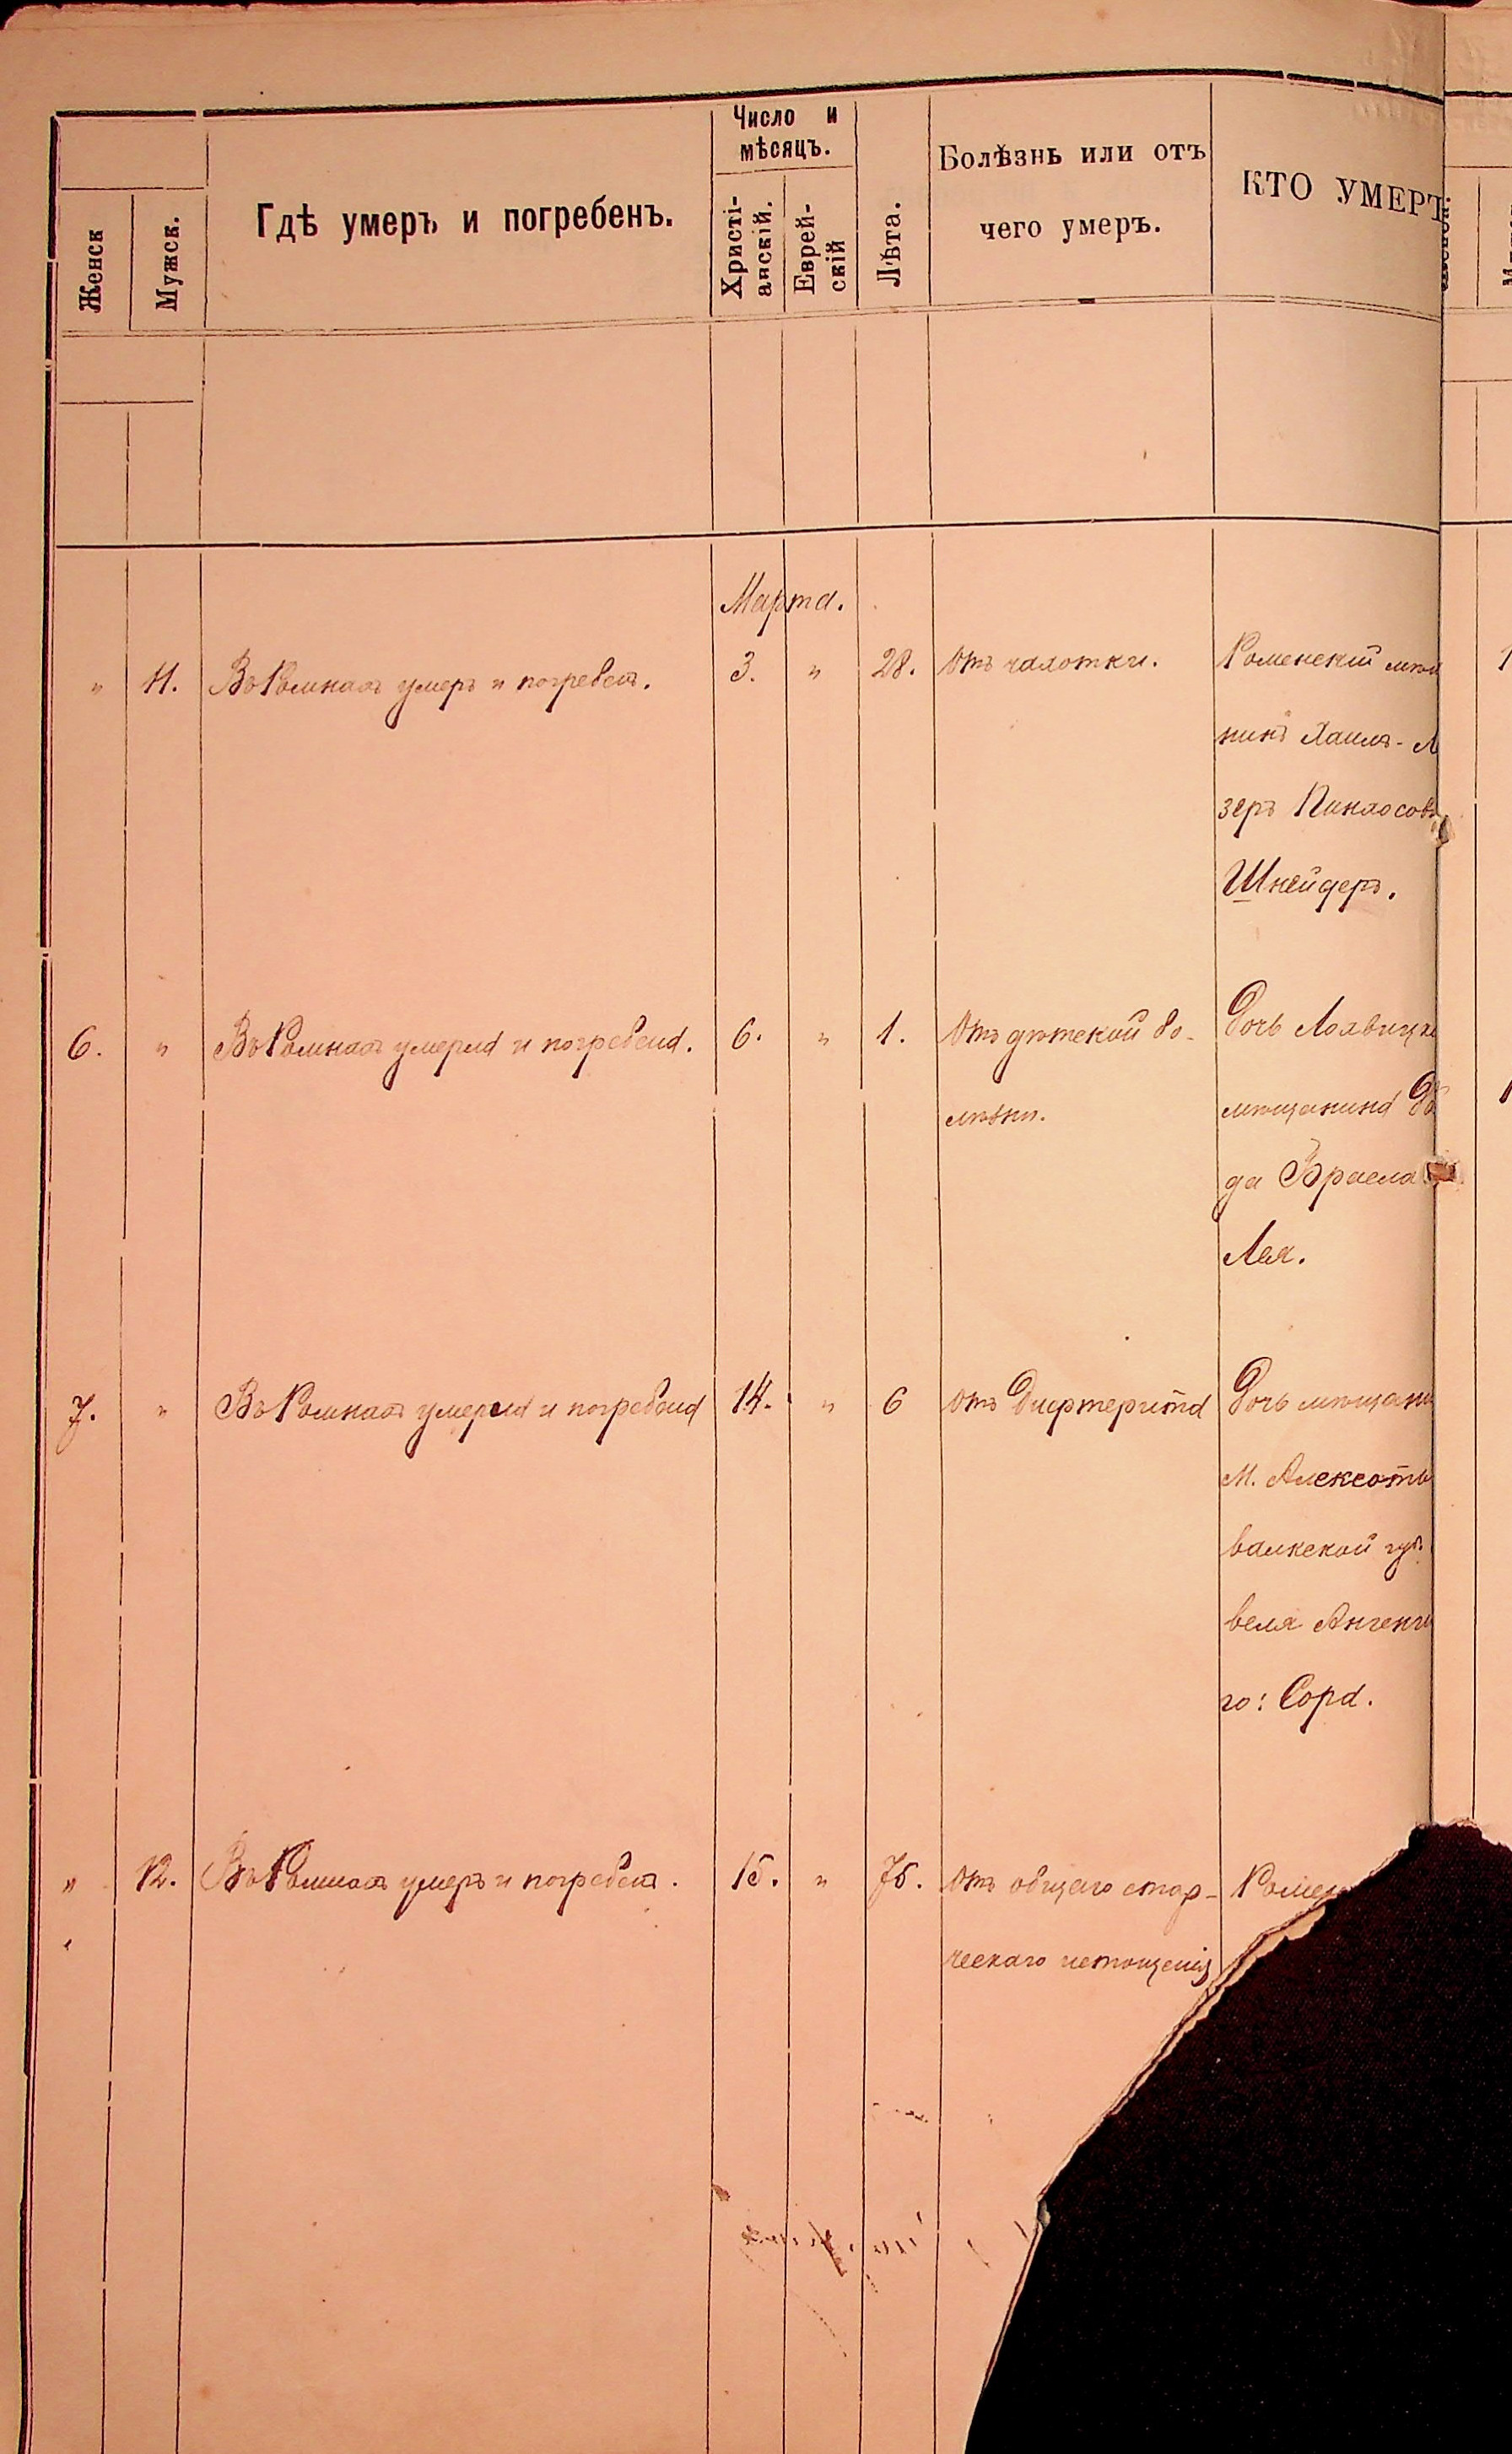 Женск
Мужск.
Гдѣ умеръ и погребенъ.
Число и мѣсяцъ.
Христі-анскій.
Еврей-скій
Лѣта.
Болѣзнь или отъ
чего умеръ.
КТО УМЕРЪ
Марта.
" 11. Въ Ромнахъ умеръ и погребенъ. 3. " 28. Отъ чахотки. Роменскій мѣщ
нинъ Хаимъ-Л
зеръ Пинхосовъ
Шнейдеръ.
6. " Въ Ромнахъ умерла и погребена. 6. " 1. Отъ дѣтской бо- Дочь Лохвицка
лѣзни. мѣщанина До
да Браела
Лея.
7. " Въ Ромнахъ умерла и погребена 14. " 6 Отъ Дифтерита Дочь мѣщани
М. Алексоты
валкской губ.
веля Ангени
го: Сора.
" 12. Въ Ромнахъ умеръ и погребенъ. 15. " 75. Отъ общаго стар- Ромен
ческаго истощенія